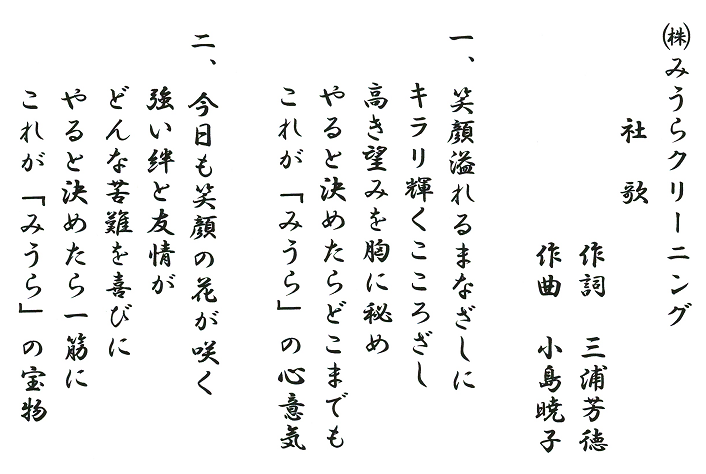 ㈱みうらクリーニング
社歌
作詞 三浦芳徳
作曲 小島暁子
一、笑顔溢れるまなざしに
キラリ輝くこころざし
高き望みを胸に秘め
やると決めたらどこまでも
これが「みうら」の心意気
二、今日も笑顔の花が咲く
強い絆と友情が
どんな苦難を喜びに
やると決めたら一筋に
これが「みうら」の宝物